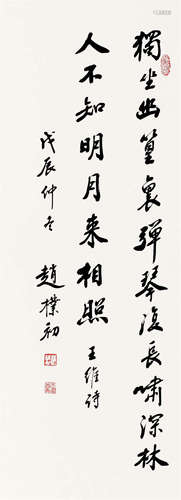 獨坐幽篁裏彈琴復長嘯深林
人不知明月来相照 王維诗
戊辰仲冬 趙樸初